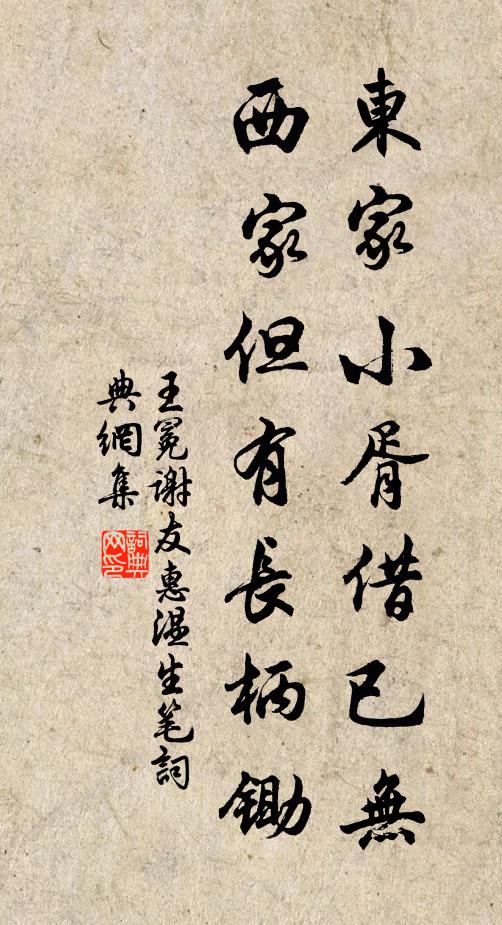 東家小胥借已無
西家但有長柄鋤
王冕謝友惠温生笔詞
典網集
詞典网印